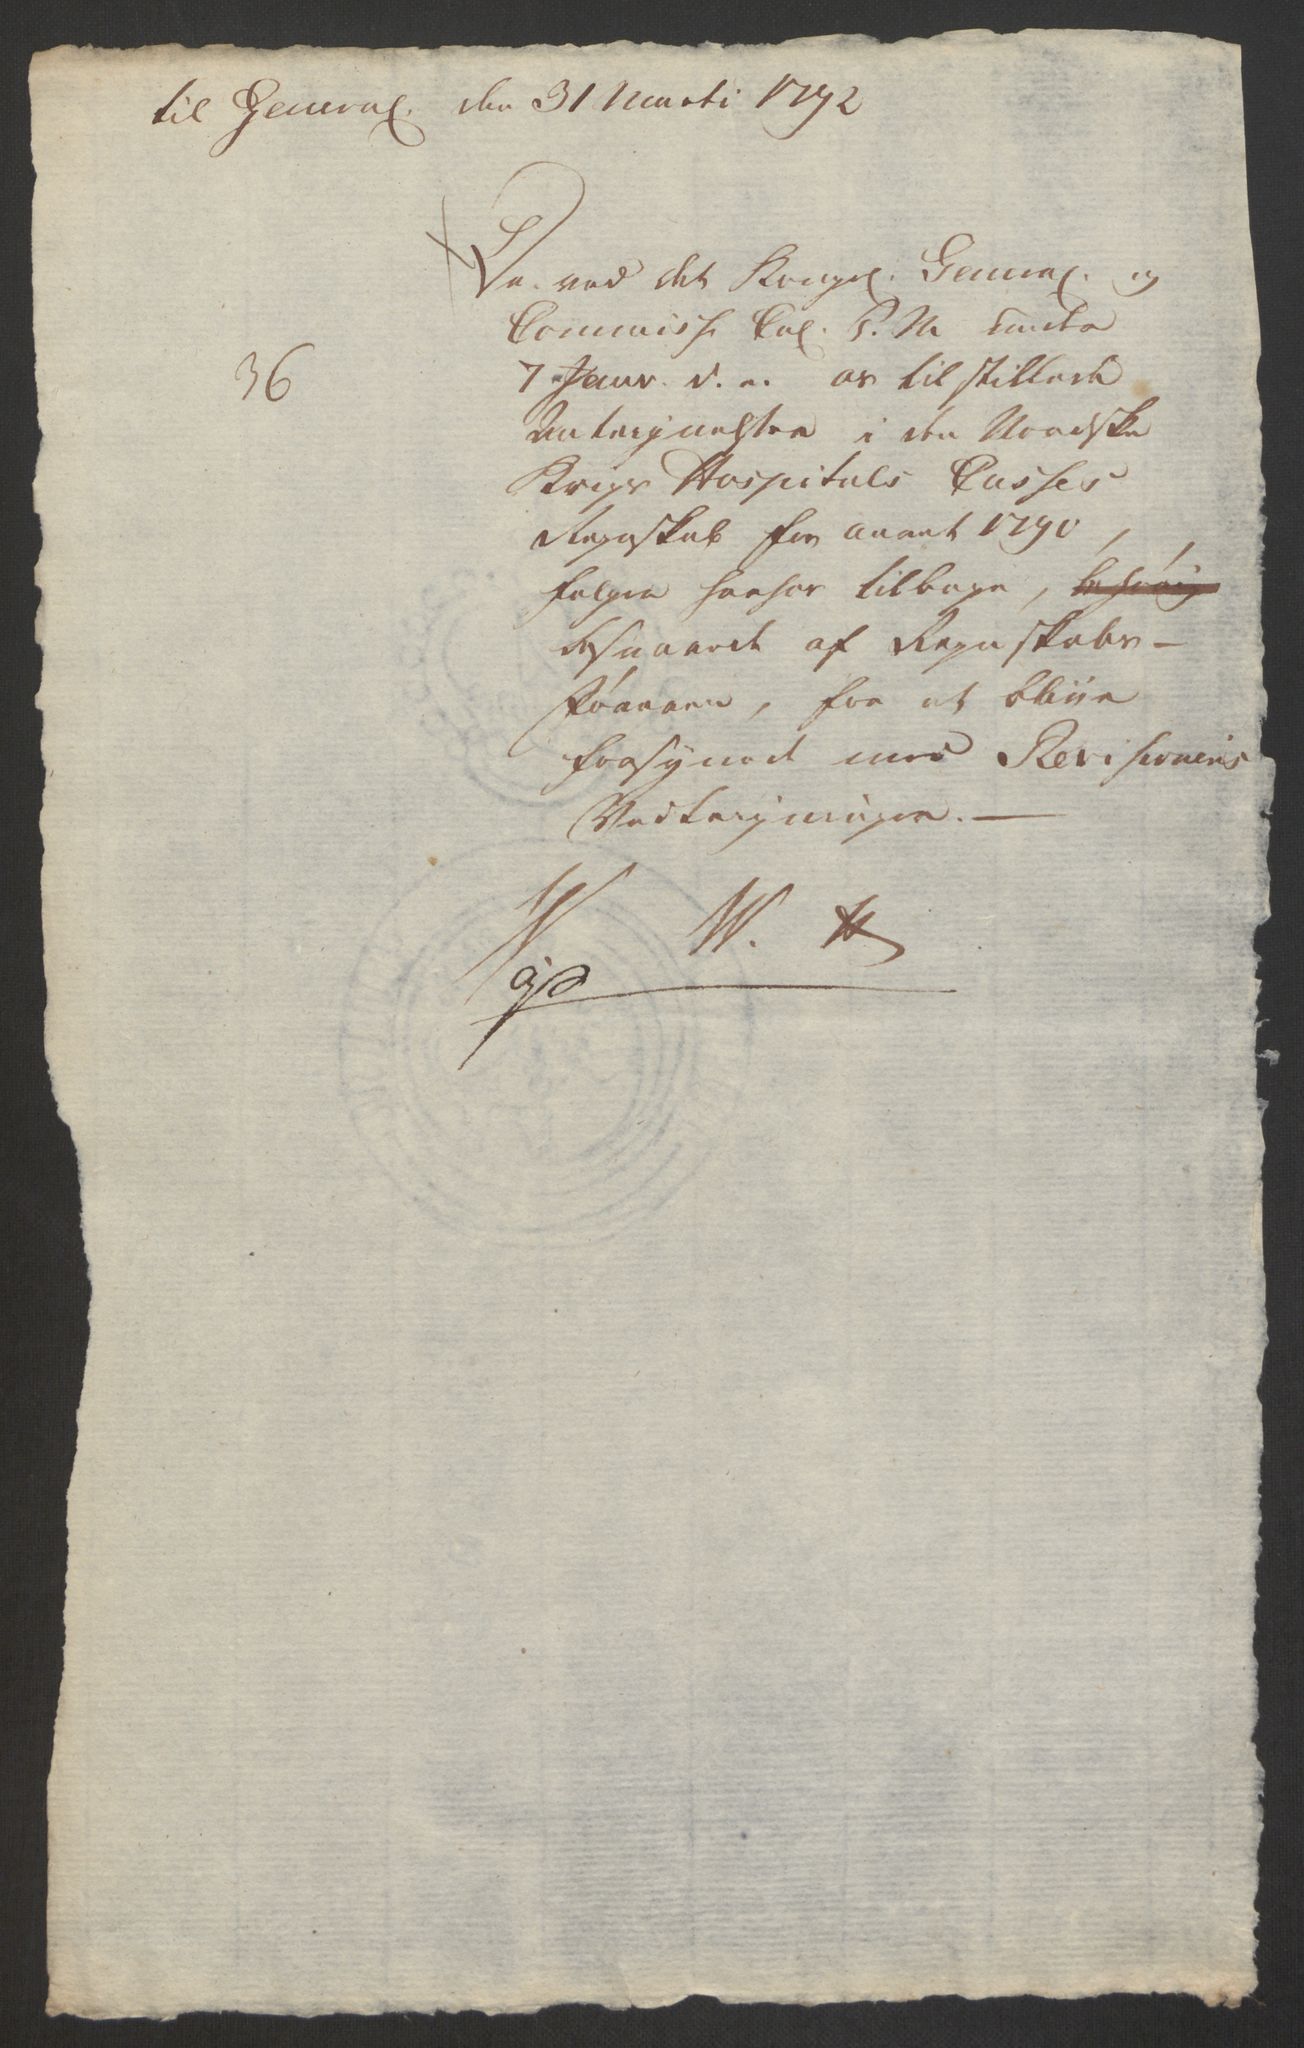 til General. den 31 Marti 1792
De ved det Kongel. General. og
Commiss. Col. P. M. under
36
7 Janv. d. a. os tilstillede
Antegnelser i den Norske
Krigs Hospitals Casses
Regnskab for anaret 1790,
følger herhos tilbage,
besvaret af Regnskabs-
føreren, for at blive
forsynet med Revisionens
Vedtegninger. —
W. W.